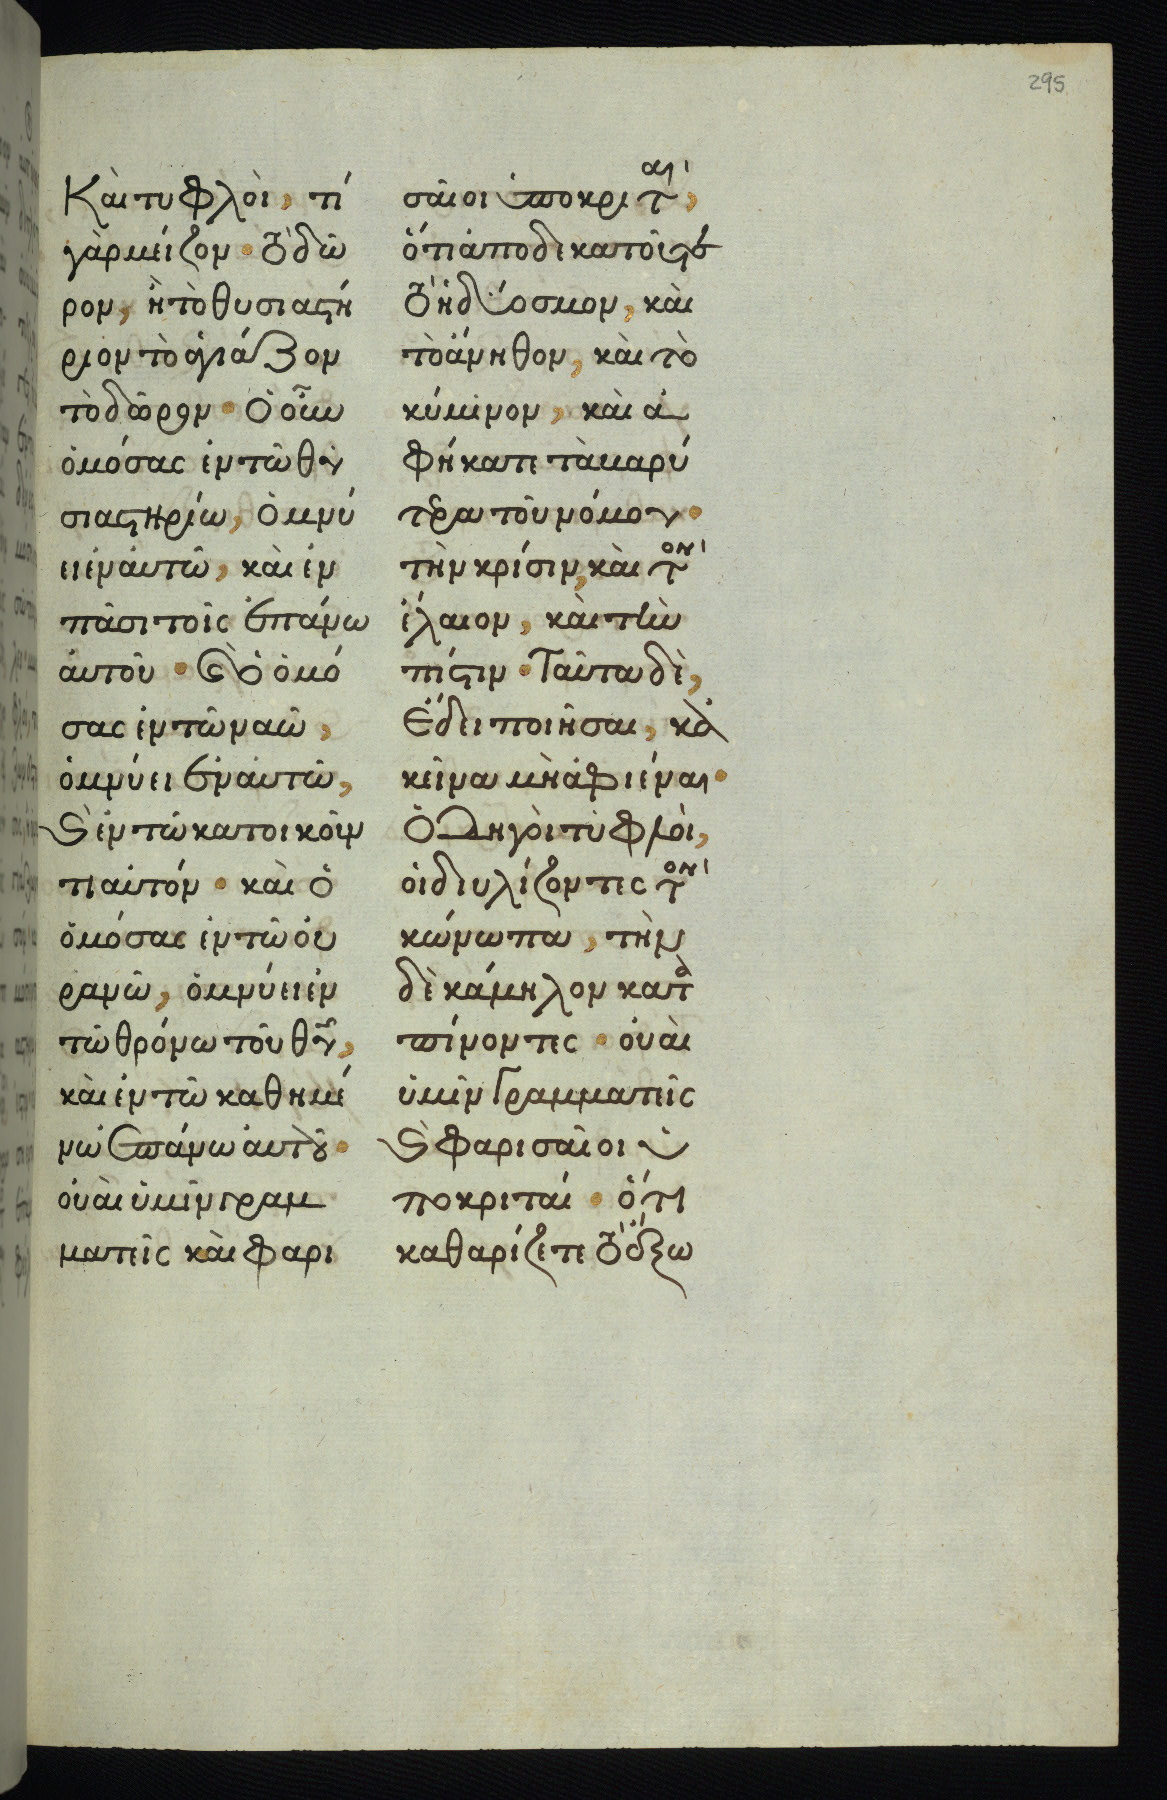 295
Κὰι τυφλὸι, τί
γὰρ μεῖζον· τὸ δῶ
ρον, ἢ τὸ θυσιαστή
ριον τὸ ἁγιάζον
τὸ δῶρον· Ὁ οὖν
ὁμόσας ἐν τῶ θυ
σιαστηρίω, ὀμνύ
ει ἐν ἀυτῶ, κὰι ἐν
πᾶσι τοῖς ἐπάνω
ἀυτοῦ· καὶ ὁ ὀμό
σας ἐν τῶ ναῶ,
ὀμνύει ἐν ἀυτῶ,
καὶ ἐν τῶ κατοικοῦν
τι ἀυτόν· κὰι ὁ
ὀμόσας ἐν τῶ ὀυ
ρανῶ, ὀμνύει ἐν
τῶ θρόνω τοῦ θῦ,
κὰι ἐν τῶ καθημέ
νω ἐπάνω ἀυτοῦ·
ὀυὰι ὑμῖν γραμ
ματεῖς κὰι φαρι
σαῖοι ὑποκριταί,
ὅτι ἀποδεκατοῦτε
τὸ ἡδύοσμον, κὰι
τὸ ἄνηθον, κὰι τὸ
κύμινον, κὰι ἀ
φήκατε τὰ βαρύ
τερα τοῦ νόμου·
τὴν κρίσιν, κὰι τὸν
ἔλαιον, κὰι τὴν
πίστιν· Ταῦτα δὲ,
ἔδει ποιῆσαι, κἀ
κεῖνα μὴ ἀφιέναι·
Ὁδηγὸι τυφλὸι,
ὁι διυλίζοντες τὸν
κώνωπα, τὴν
δὲ κάμηλον κατα
πίνοντες· ὀυὰι
ὑμῖν Γραμματεῖς
καὶ φαρισαῖοι ὑ
ποκριταί· ὅτι
καθαρίζετε τὸ ἔξω